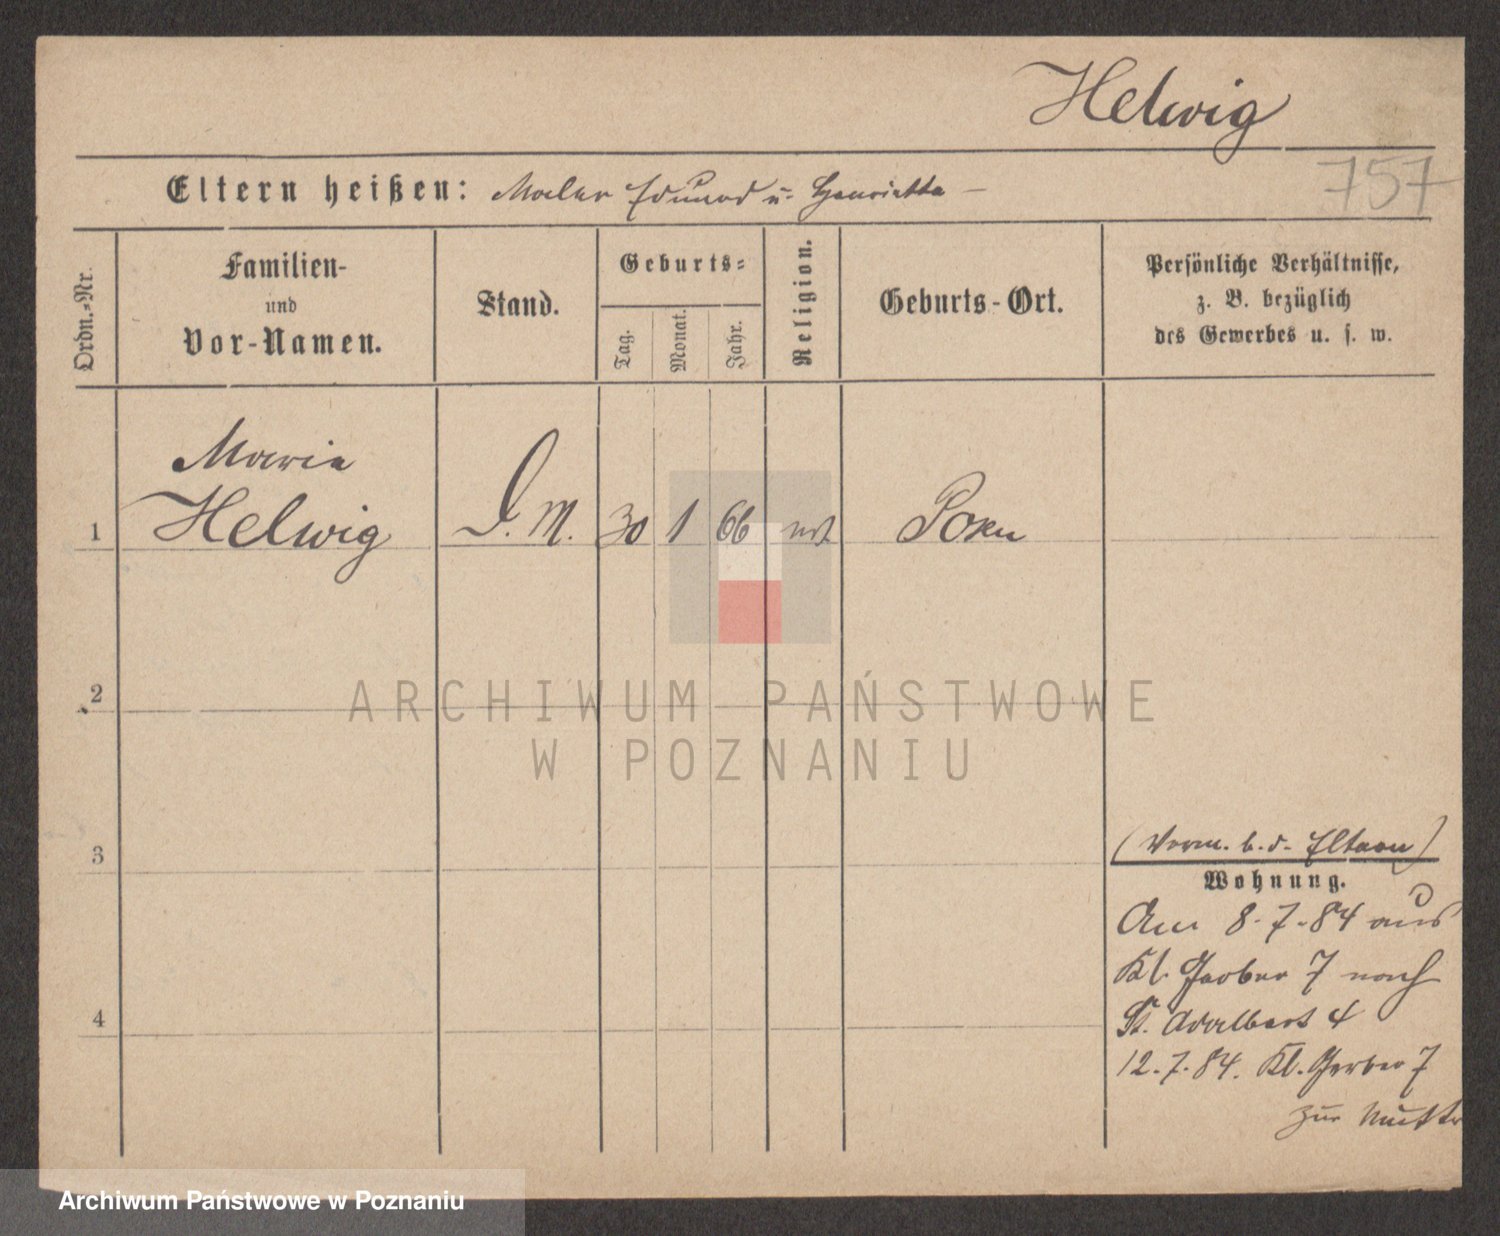 Helwig
757
Eltern heißen: Maler Eduard u. Henriette
Ordn.-Nr.
Familien-
und
Vor-Namen.
Stand.
Geburts-
Tag.
Monat.
Jahr.
Religion.
Geburts-Ort.
Persönliche Verhältnisse,
z. B. bezüglich
des Gewerbes u. s. w.
Maria
1 Helwig D. M. 30 1 66 Posen
2
3
4
(Vorm. b. d. Eltern)
Wohnung.
Am 8.7.84 aus
Kl. Gerber 7 nach
St. Adalbert 4
12.7.84. Kl. Gerber 7
zur Mutter
ARCHIWUM PAŃSTWOWE
W POZNANIU
Archiwum Państwowe w Poznaniu